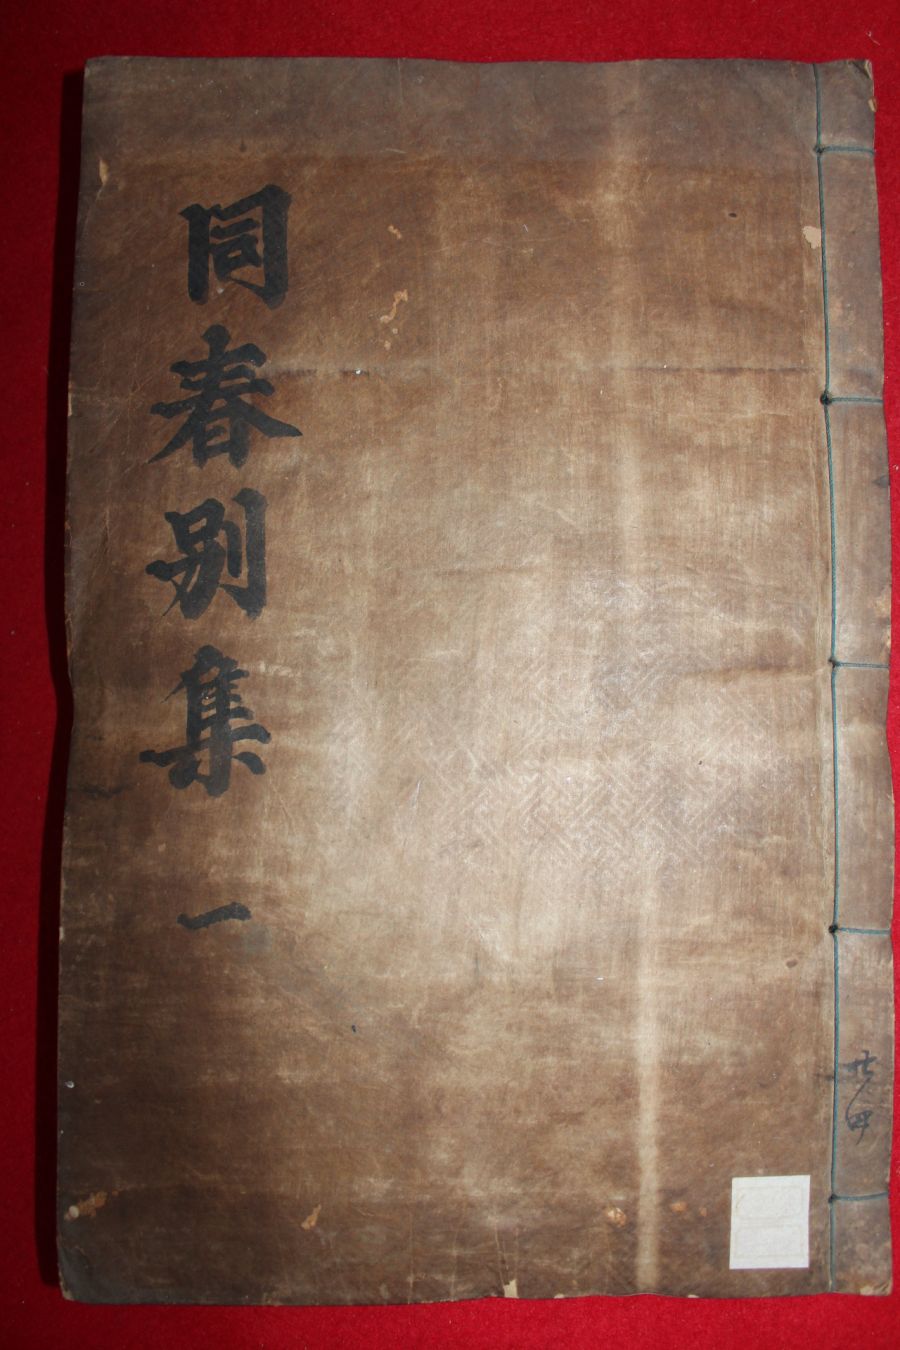 同春別集 一